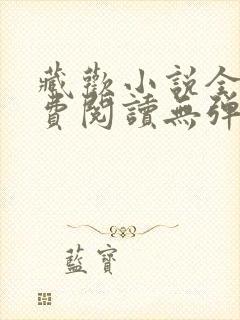 藏歡小说全
費閱讀無彈
藍寶